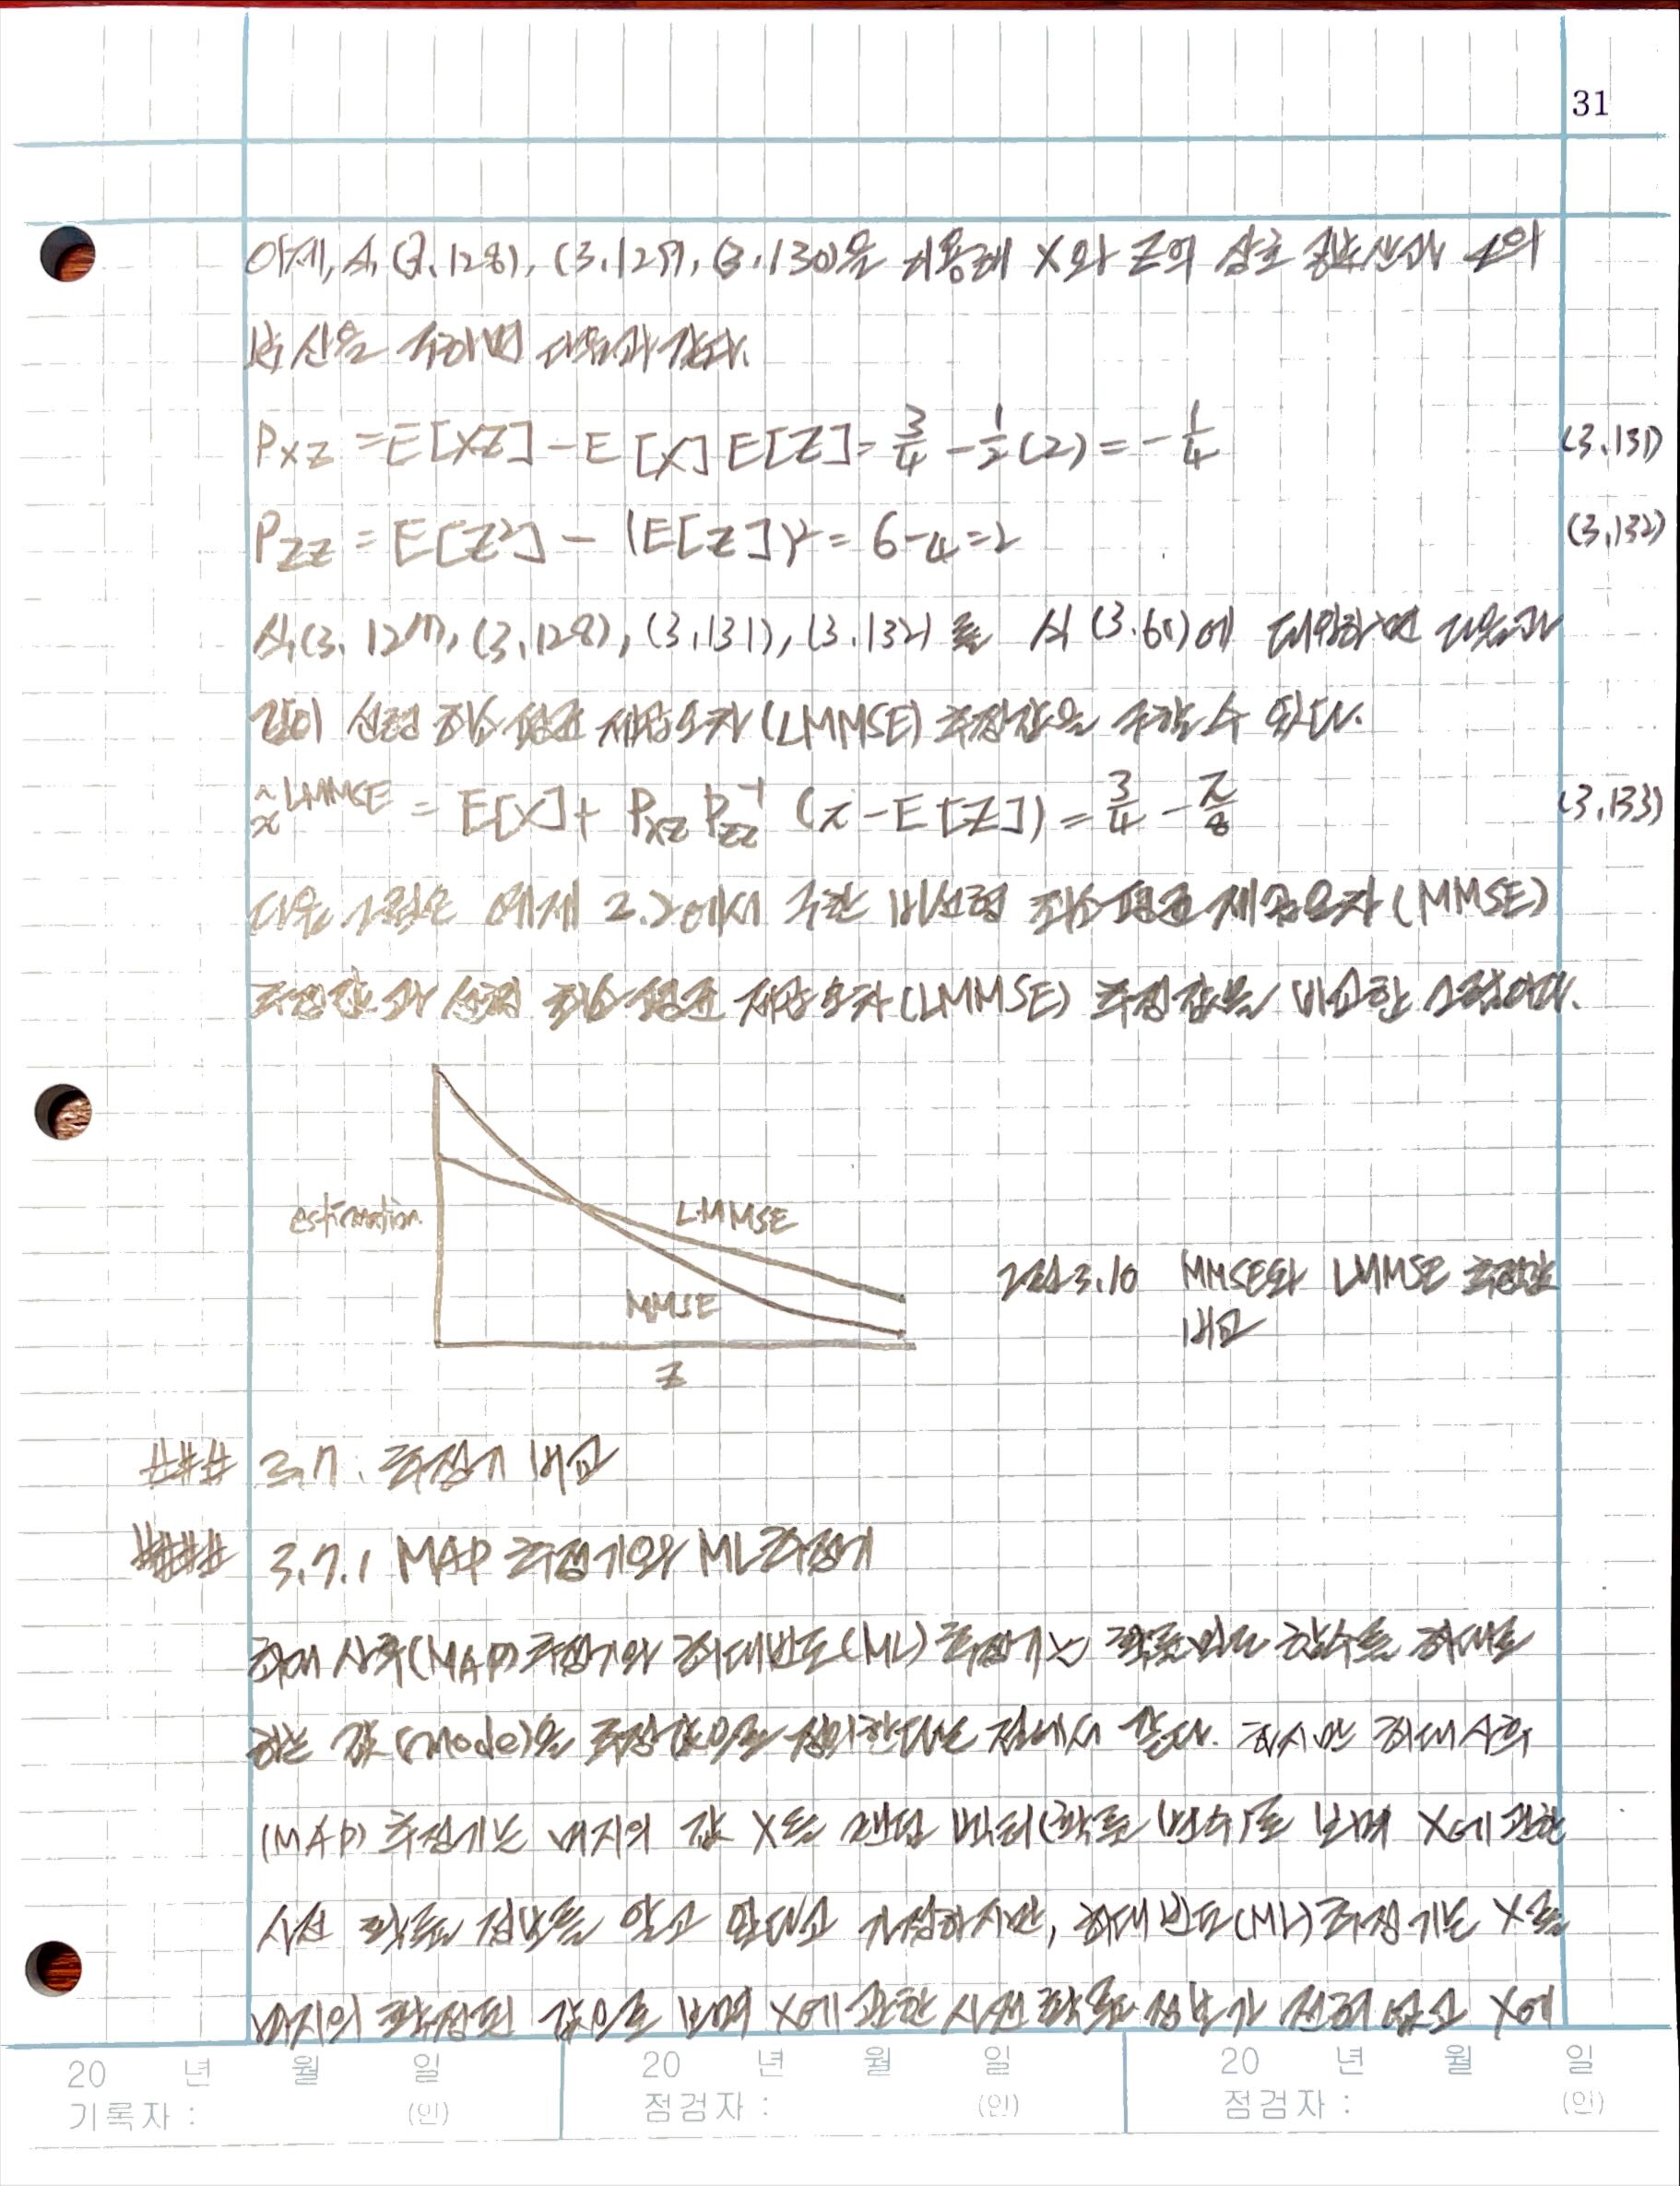 31
이제, 식 (3.128), (3.129), (3.130)을 이용해 X와 Z의 상호 공분산과 Z의
분산을 구하면 다음과 같다.
P_XZ = E[XZ] - E[X]E[Z] = 3/4 - 1/2(2) = -1/4 (3.131)
P_ZZ = E[Z²] - (E[Z])² = 6-4=2 (3.132)
식 (3.127), (3.128), (3.131), (3.132)를 식 (3.61)에 대입하면 다음과
같이 선형 최소 평균 제곱오차(LMMSE) 추정값을 구할 수 있다.
x̂^LMMSE = E[X] + P_XZ P_ZZ^-1 (z - E[Z]) = 3/4 - z/8 (3.133)
다음 그림은 예제 2.2에서 구한 비선형 최소 평균 제곱오차(MMSE)
추정값과 선형 최소 평균 제곱오차(LMMSE) 추정값을 비교한 그림이다.
estimation
LMMSE
MMSE
z
그림 3.10 MMSE와 LMMSE 추정값
비교
### 3.7. 추정기 비교
#### 3.7.1 MAP 추정기와 ML추정기
최대 사후(MAP) 추정기와 최대빈도(ML) 추정기는 확률 밀도 함수를 최대로
하는 값(mode)을 추정값으로 정의한다는 점에서 같다. 하지만 최대사후
(MAP) 추정기는 미지의 값 X를 랜덤 벡터(확률 변수)로 보며 X에 관한
사전 확률 정보를 알고 있다고 가정하지만, 최대빈도(ML) 추정기는 X를
미지의 확정된 값으로 보며 X에 관한 사전 확률 정보가 전혀 없고 X에
20 년 월 일 20 년 월 일 20 년 월 일
기록자 : (인) 점검자 : (인) 점검자 : (인)